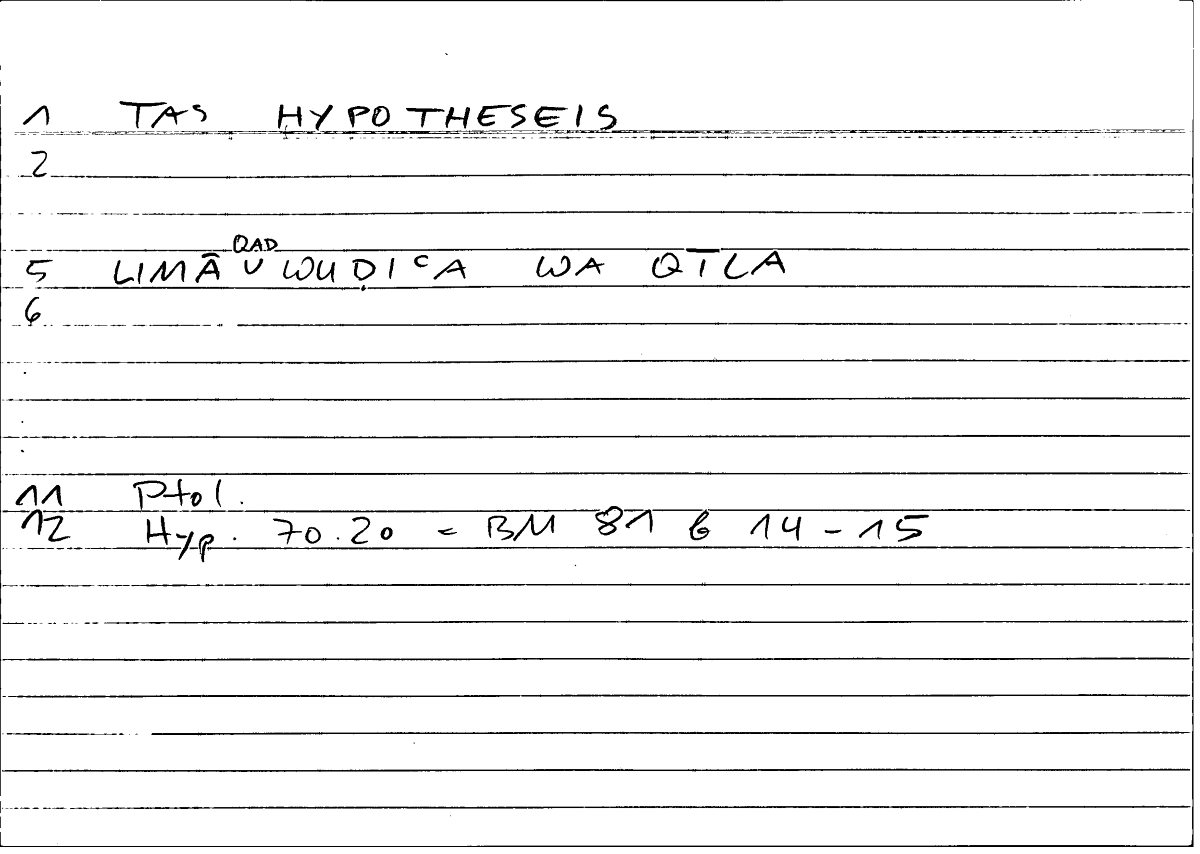 1 TAS HYPOTHESEIS
2
QAD
5 LIMĀ WUḌIʿA WA QĪLA
6
11 Ptol.
12 Hyp. 70.20 = BM 81 b 14-15